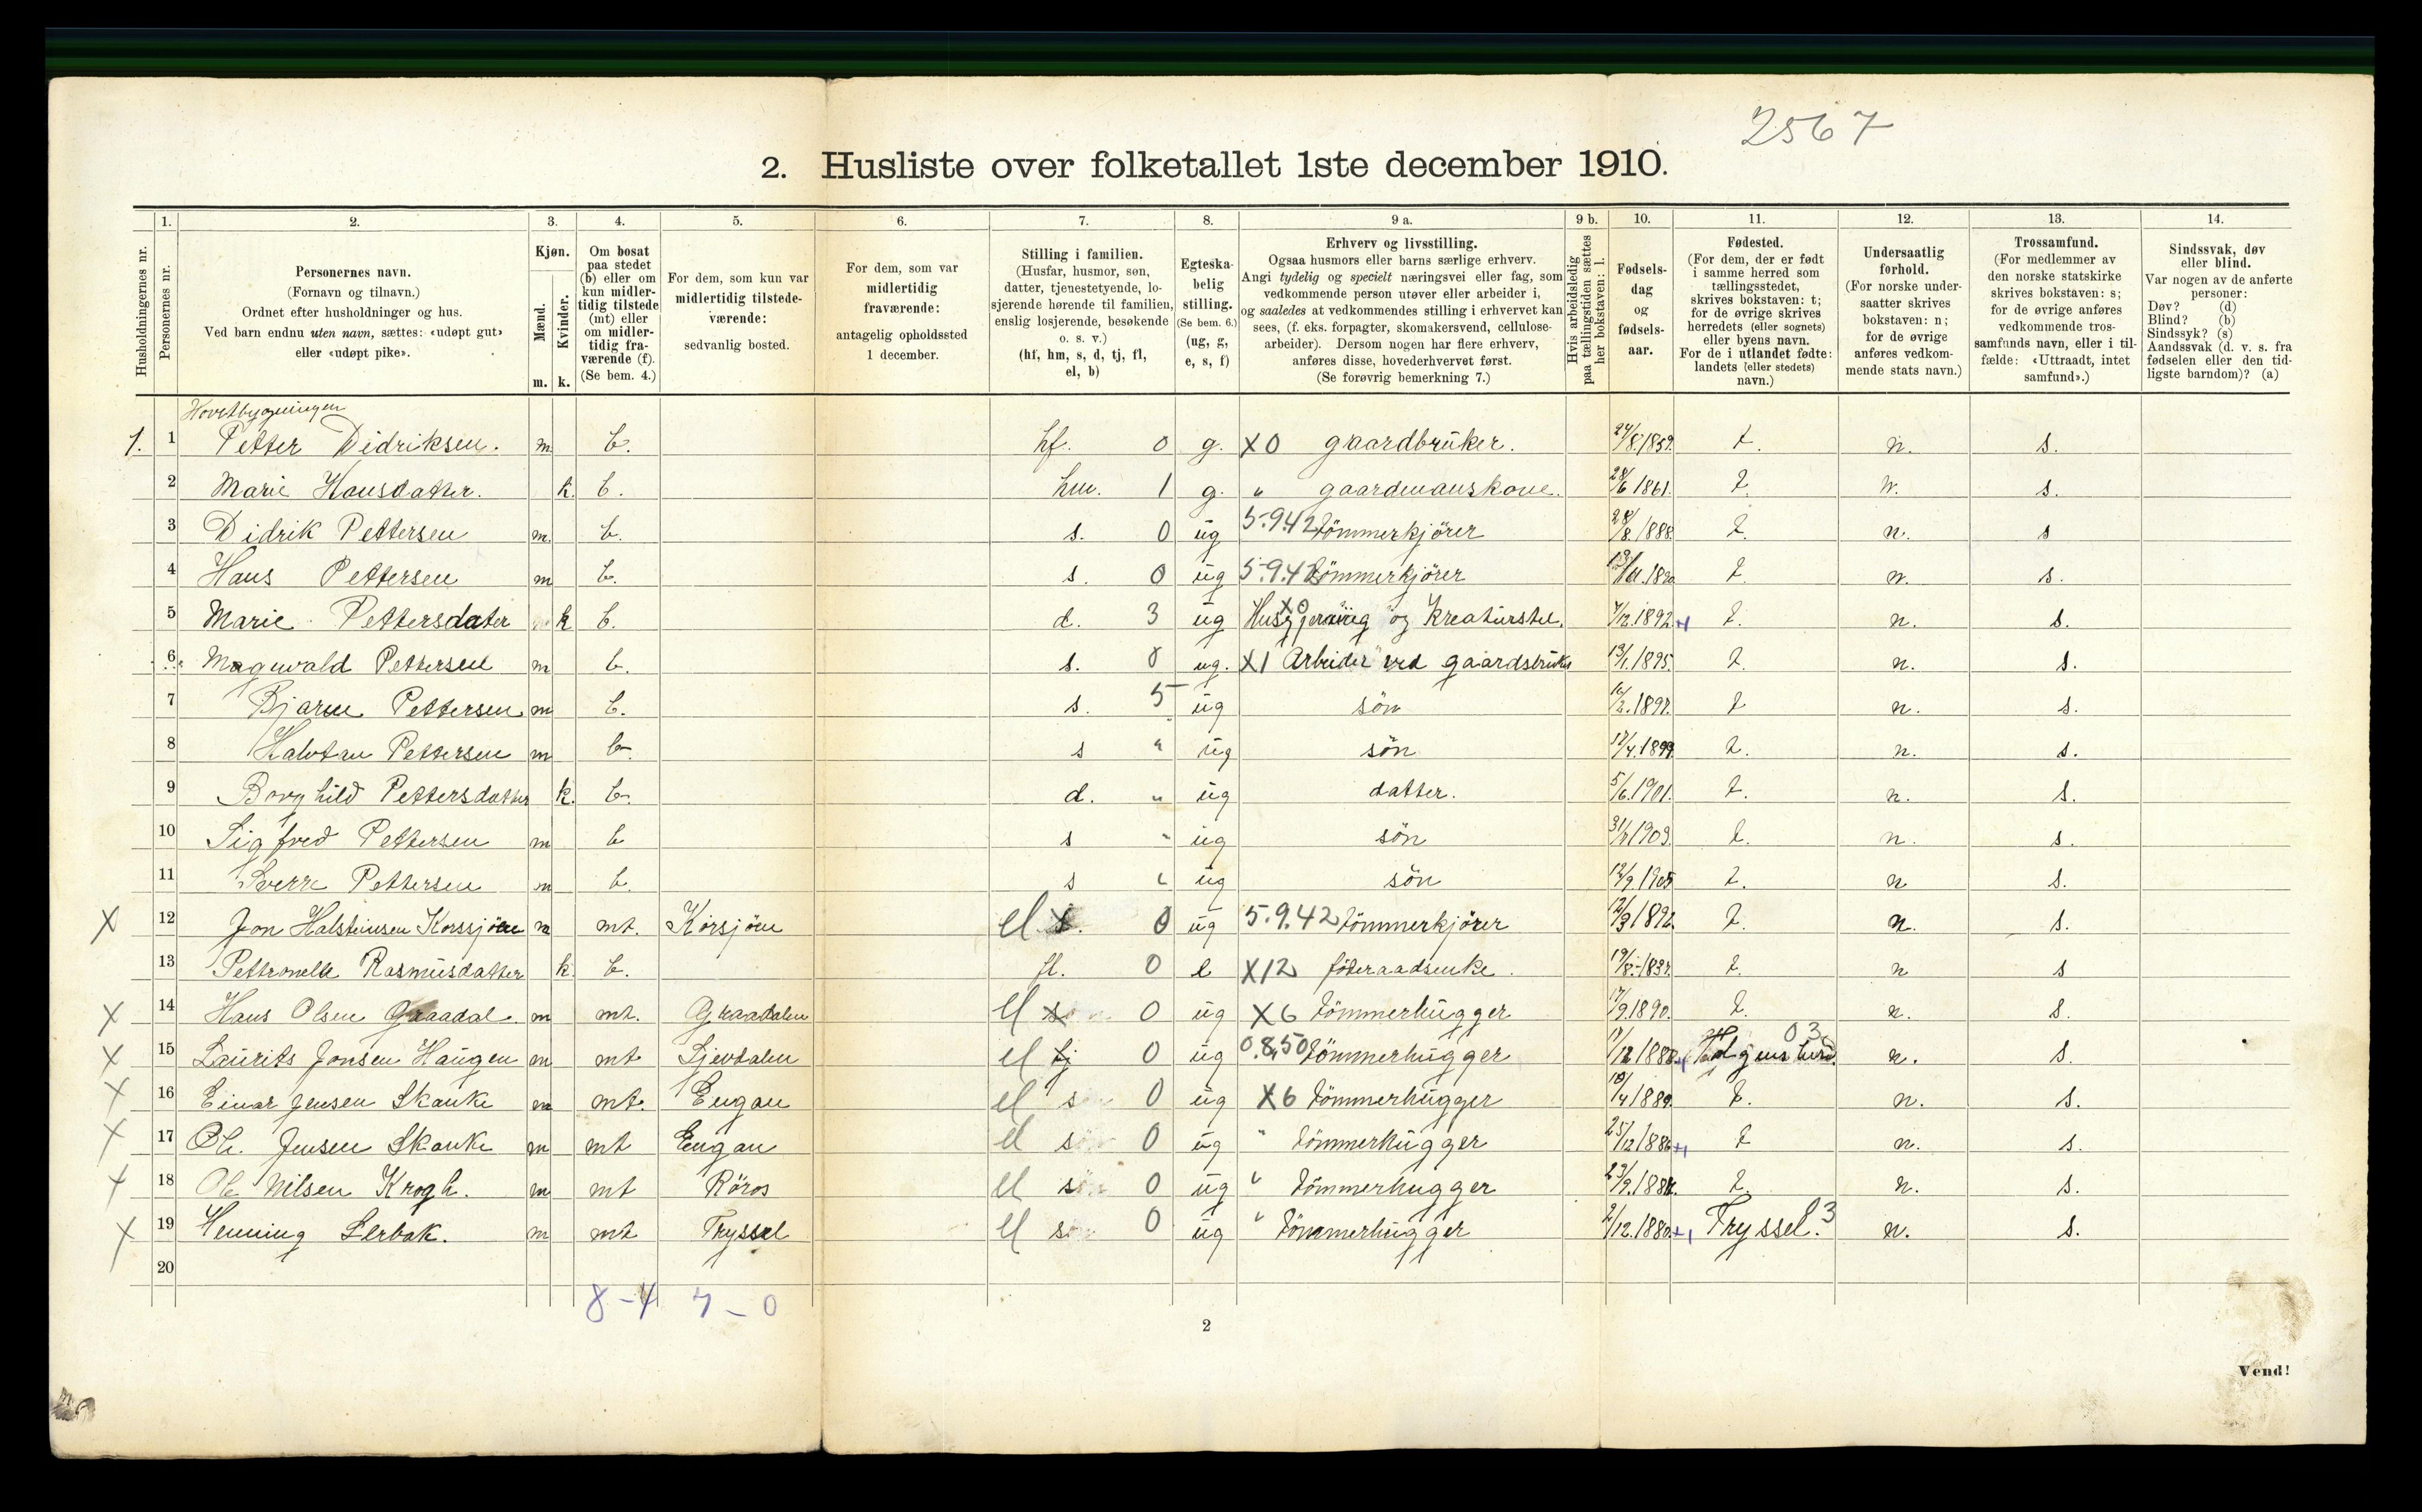 2567
2. Husliste over folketallet 1ste december 1910.
1. 2. 3. 4. 5. 6. 7. 8. 9 a. 9 b. 10. 11. 12. 13. 14.
Husholdningernes nr.
Personernes nr.
Personernes navn.
(Fornavn og tilnavn.)
Ordnet efter husholdninger og hus.
Ved barn endnu uten navn, sættes: «udøpt gut»
eller «udøpt pike».
Kjøn.
Mænd.
Kvinder.
m. k.
Om bosat
paa stedet
(b) eller om
kun midler-
tidig tilstede
(mt) eller
om midler-
tidig fra-
værende (f).
(Se bem. 4.)
For dem, som kun var
midlertidig tilstede-
værende:
sedvanlig bosted.
For dem, som var
midlertidig
fraværende:
antagelig opholdssted
1 december.
Stilling i familien.
(Husfar, husmor, søn,
datter, tjenestetyende, lo-
sjerende hørende til familien,
enslig losjerende, besøkende
o. s. v.)
(hf, hm, s, d, tj, fl,
el, b)
Egteska-
belig
stilling.
(Se bem. 6.)
(ug, g,
e, s, f)
Erhverv og livsstilling.
Ogsaa husmors eller barns særlige erhverv.
Angi tydelig og specielt næringsvei eller fag, som
vedkommende person utøver eller arbeider i,
og saaledes at vedkommendes stilling i erhvervet kan
sees, (f. eks. forpagter, skomakersvend, cellulose-
arbeider). Dersom nogen har flere erhverv,
anføres disse, hovederhvervet først.
(Se forøvrig bemerkning 7.)
Hvis arbeidsledig
paa tællingstiden sættes
her bokstaven: l.
Fødsels-
dag
og
fødsels-
aar.
Fødested.
(For dem, der er født
i samme herred som
tællingsstedet,
skrives bokstaven: t;
for de øvrige skrives
herredets (eller sognets)
eller byens navn.
For de i utlandet fødte:
landets (eller stedets)
navn.)
Undersaatlig
forhold.
(For norske under-
saatter skrives
bokstaven: n;
for de øvrige
anføres vedkom-
mende stats navn.)
Trossamfund.
(For medlemmer av
den norske statskirke
skrives bokstaven: s;
for de øvrige anføres
vedkommende tros-
samfunds navn, eller i til-
fælde: «Uttraadt, intet
samfund».)
Sindssvak, døv
eller blind.
Var nogen av de anførte
personer:
Døv? (d)
Blind? (b)
Sindssyk? (s)
Aandssvak (d. v. s. fra
fødselen eller den tid-
ligste barndom)? (a)
Hovetbygningen
1. 1 Petter Didriksen. m b. hf. 0 g. X0 gaardbruker. 24/8.1859. t. n. s.
2 Marie Hansdatter. k. b. hm. 1 g. " gaardmanskone. 28/6 1861. t. n. s.
3 Didrik Pettersen m b. s. 0 ug 5.9.42 tömmerkjörer 28/8.1888. t. n. s
4 Hans Pettersen m b. s. 0 ug 5.9.42 tömmerkjörer t. n. s.
5 Marie Pettersdater k b. d. 3 ug X0 Husgjerning og Kreaturstel. 7/12.1892. t. n. s.
6 Magnvald Pettersen m b. s. 0 ug. X1 Arbeider ved gaardsbruket 13/1.1895. t. n. s.
7 Bjarne Pettersen m b. s. 5 ug sön t n. s.
8 Halvtan Pettersen m b. s " ug sön 17/4.1899. t. n. s.
9 Borghild Pettersdatter k. b. d. " ug datter. 5/6.1901. t. n. s.
10 Sigfred Pettersen m b s " ug sön t. n. s.
11 Sverre Pettersen m b. s " ug sön 12/9.1905 t. n s.
X 12 Jon Halsteinsen Korssjöen m mt. Korsjöen el s. 0 ug 5.9.42 tömmerkjörer 12/3 1892. t. n. s.
13 Pettronelle Rasmusdatter k. b. fl. 0 e X12 föderaadsenke. t. n s
X 14 Hans Olsen Graadal. m mt. Graadalen el 0 ug X6 tömmerhugger 17/9.1890. t. n. s.
X 15 Laurits Jonsen Haugen m mt el tj 0 ug 0.8,50 tömmerhugger 03 n. s.
X 16 Einar Jensen Skanke m mt. Engan el s 0 ug X6 tömmerhugger 18/4 1889. t. n. s.
X 17 Ole. Jensen Skanke m mt Engan el sön 0 ug " tömmerhugger 25/12 1886 t n. s.
X 18 Ole Nilsen Krogh. m mt Röros el sön 0 ug " tömmerhugger t. n. s.
X 19 Henning Lerbak. m mt Tryssel el sön 0 ug " tömmerhugger 2/12.1880. Tryssel. 3 n. s.
20
8-4 7-0
2
Vend!